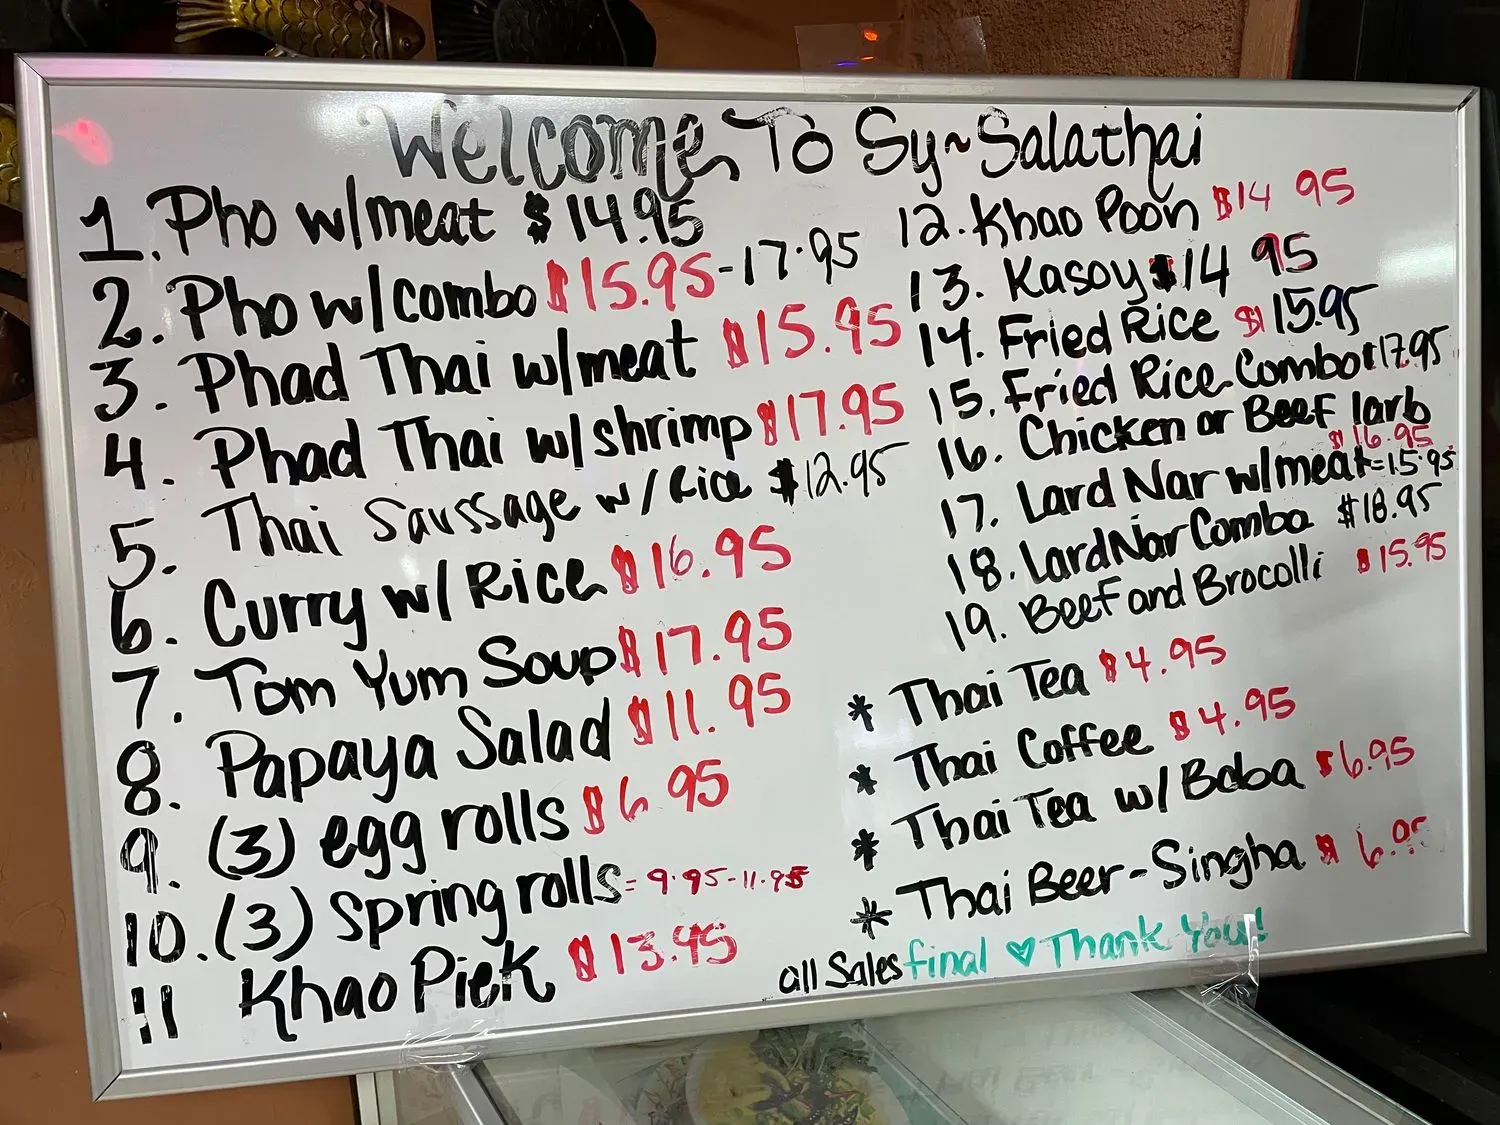 Welcome To Sy~Salathai
1. Pho w/meat $14.95
2. Pho w/combo $15.95-17.95
3. Phad Thai w/meat $15.95
4. Phad Thai w/shrimp $17.95
5. Thai Saussage w/Rice $12.95
6. Curry w/Rice $16.95
7. Tom Yum Soup $17.95
8. Papaya Salad $11.95
9. (3) egg rolls $6.95
10. (3) Spring rolls = 9.95-11.95
11 Khao Piek $13.95
12. Khao Poon $14 95
13. Kasoy $14 95
14. Fried Rice $15.95
15. Fried Rice Combo $17.95
16. Chicken or Beef larb
$16.95
17. Lard Nar w/meat=15.95
18. Lard Nar Combo $18.95
19. Beef and Brocolli $15.95
* Thai Tea $4.95
* Thai Coffee $4.95
* Thai Tea w/ Boba $6.95
* Thai Beer-Singha $6.95
all Sales final ♥ Thank You!